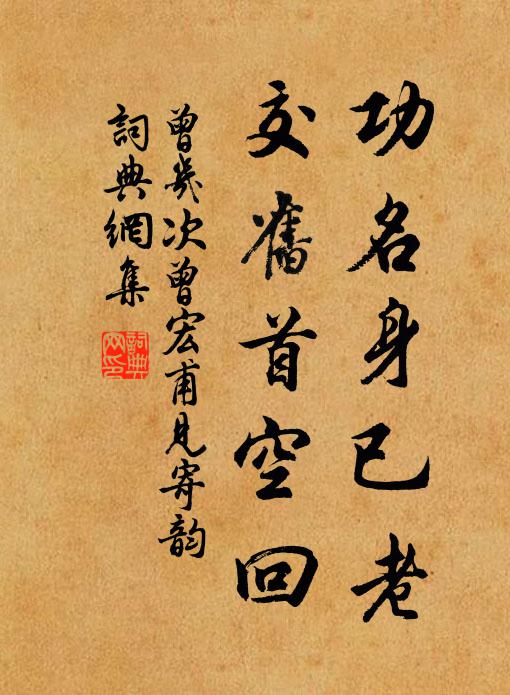 功名身已老
交舊首空回
曾幾次曾宏甫見寄韵
詞典網集
詞典
网印